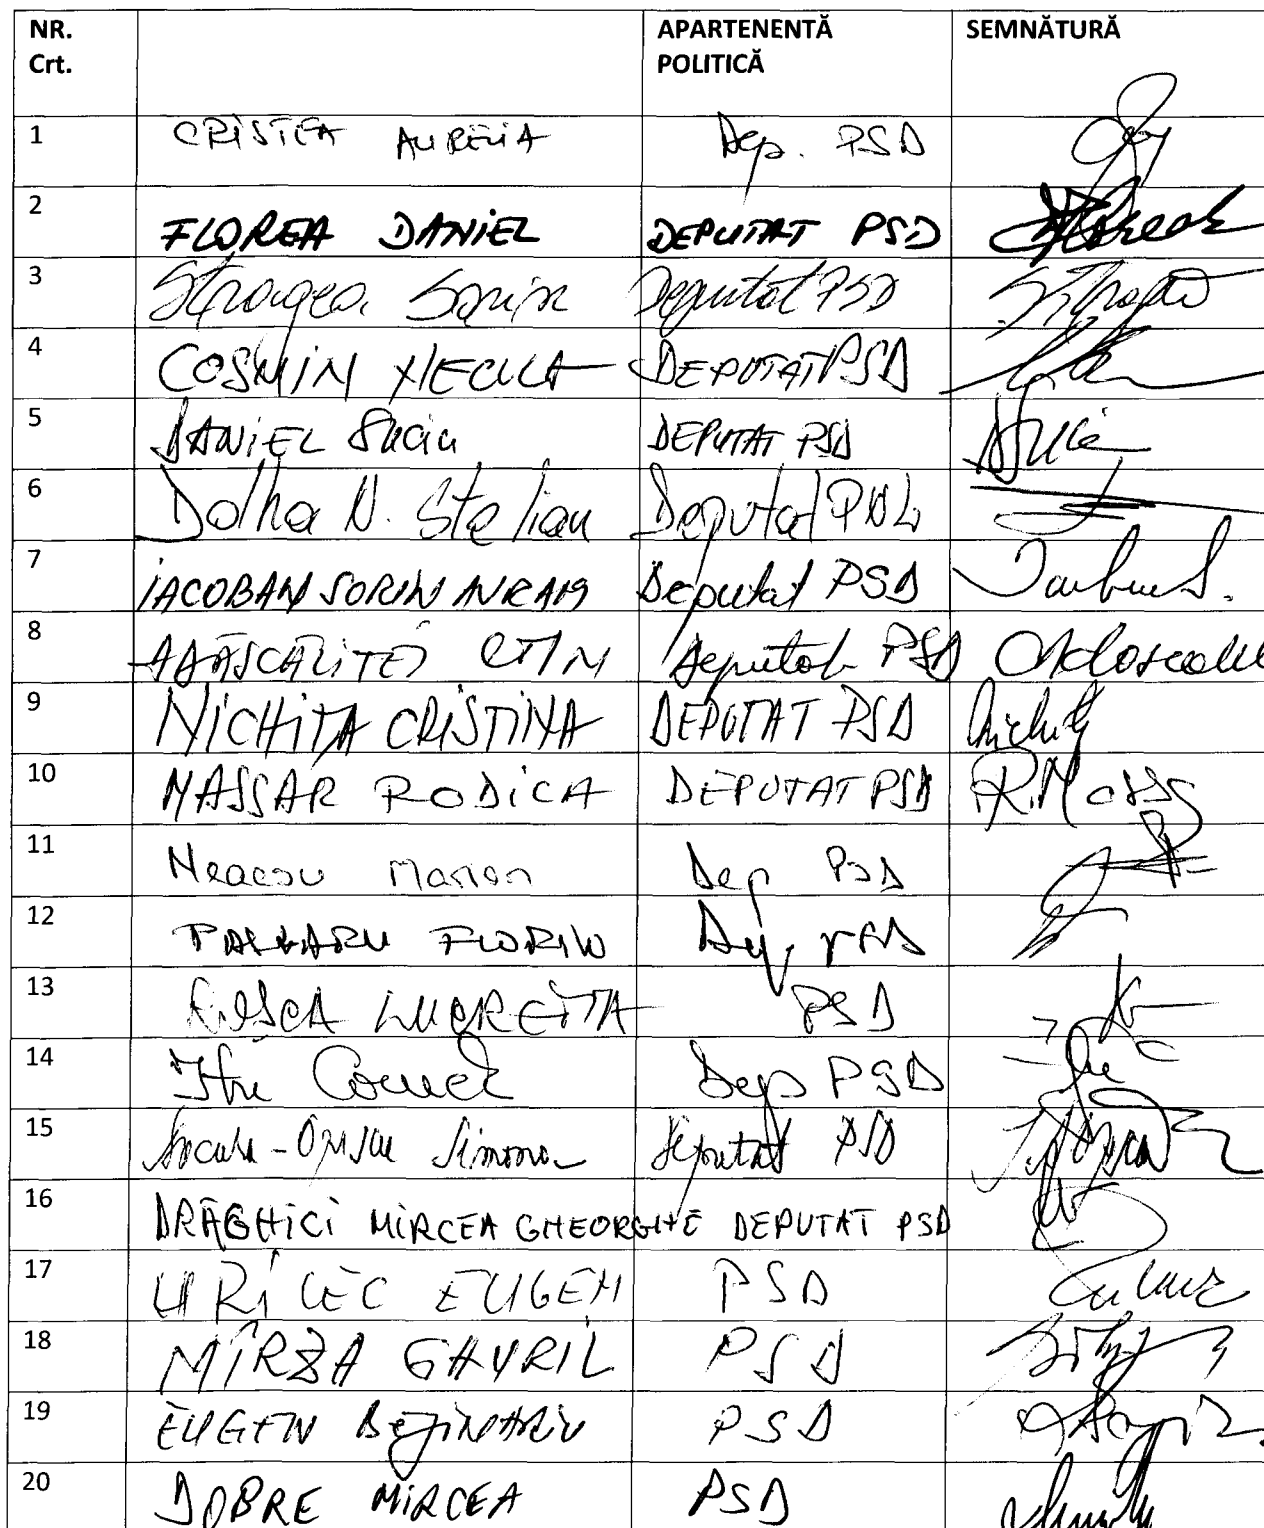 NR. Crt. APARTENENTĂ POLITICĂ SEMNĂTURĂ
1 CRISTEA AURELIA Dep. PSD
2 FLOREA DANIEL DEPUTAT PSD
3 Stragea Sorin Deputat PSD
4 COSMIN NECULA DEPUTAT PSD
5 DANIEL Suciu DEPUTAT PSD
6 Dolha N. Stelian Deputat PNL
7 IACOBAN SORIN AVRAM Deputat PSD
8 ADĂSCĂLIȚEI CTIN Deputat PSD
9 NICHITA CRISTINA DEPUTAT PSD
10 NASSAR RODICA DEPUTAT PSD
11 Neacsu Marian Dep PSD
12 FLORIN Dep. PSD
13 ROSCA LUCREȚIA PSD
14 Itu Cornel Dep PSD
15 Simona Deputat PSD
16 DRĂGHICI MIRCEA GHEORGHE DEPUTAT PSD
17 URICEC EUGEN PSD
18 MÎRZA GAVRIL PSD
19 EUGEN Bejinariu PSD
20 DOBRE MIRCEA PSD